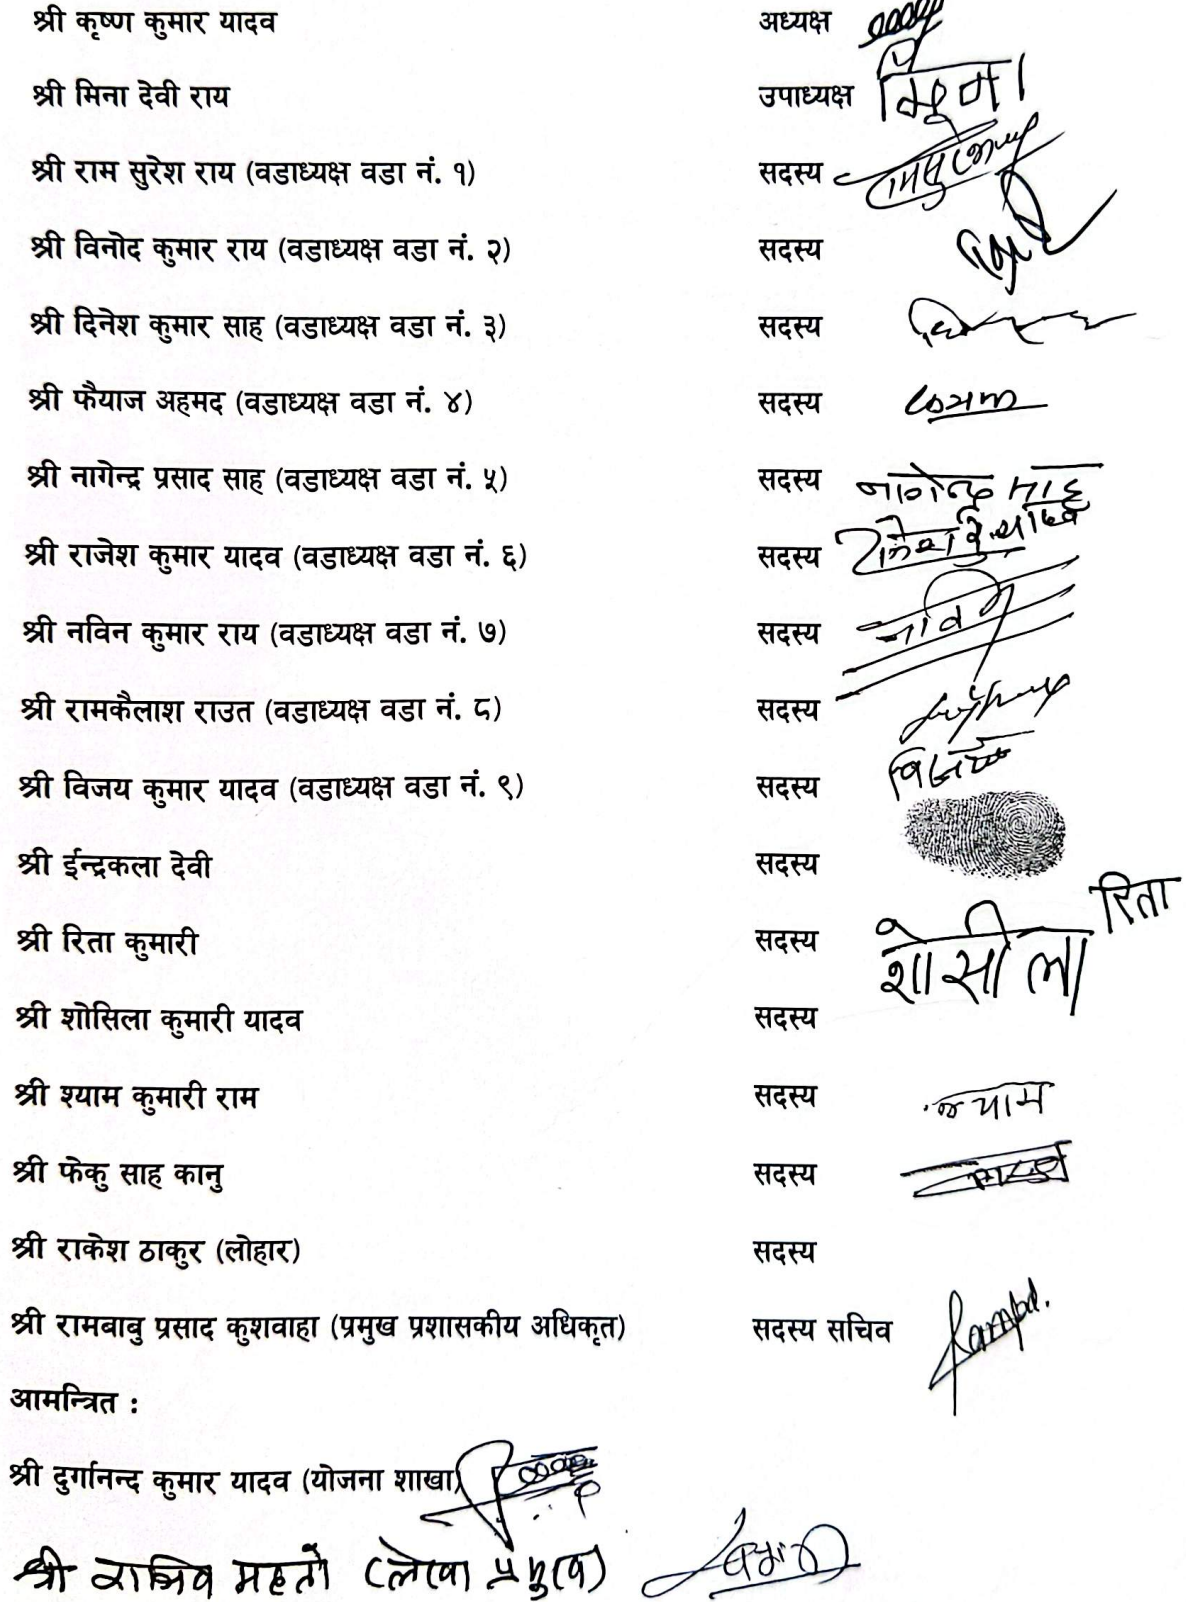 श्री कृष्ण कुमार यादव अध्यक्ष
श्री मिना देवी राय उपाध्यक्ष
श्री राम सुरेश राय (वडाध्यक्ष वडा नं. १) सदस्य
श्री विनोद कुमार राय (वडाध्यक्ष वडा नं. २) सदस्य
श्री दिनेश कुमार साह (वडाध्यक्ष वडा नं. ३) सदस्य
श्री फैयाज अहमद (वडाध्यक्ष वडा नं. ४) सदस्य
श्री नागेन्द्र प्रसाद साह (वडाध्यक्ष वडा नं. ५) सदस्य नागेन्द्र साह
श्री राजेश कुमार यादव (वडाध्यक्ष वडा नं. ६) सदस्य
श्री नविन कुमार राय (वडाध्यक्ष वडा नं. ७) सदस्य
श्री रामकैलाश राउत (वडाध्यक्ष वडा नं. ८) सदस्य
श्री विजय कुमार यादव (वडाध्यक्ष वडा नं. ९) सदस्य
श्री ईन्द्रकला देवी सदस्य
श्री रिता कुमारी सदस्य रिता
शोसीला
श्री शोसिला कुमारी यादव सदस्य
श्री श्याम कुमारी राम सदस्य श्याम
श्री फेकु साह कानु सदस्य
श्री राकेश ठाकुर (लोहार) सदस्य
श्री रामबाबु प्रसाद कुशवाहा (प्रमुख प्रशासकीय अधिकृत) सदस्य सचिव
आमन्त्रित :
श्री दुर्गानन्द कुमार यादव (योजना शाखा)
श्री राजिव महतो (लेखा प्रमुख)